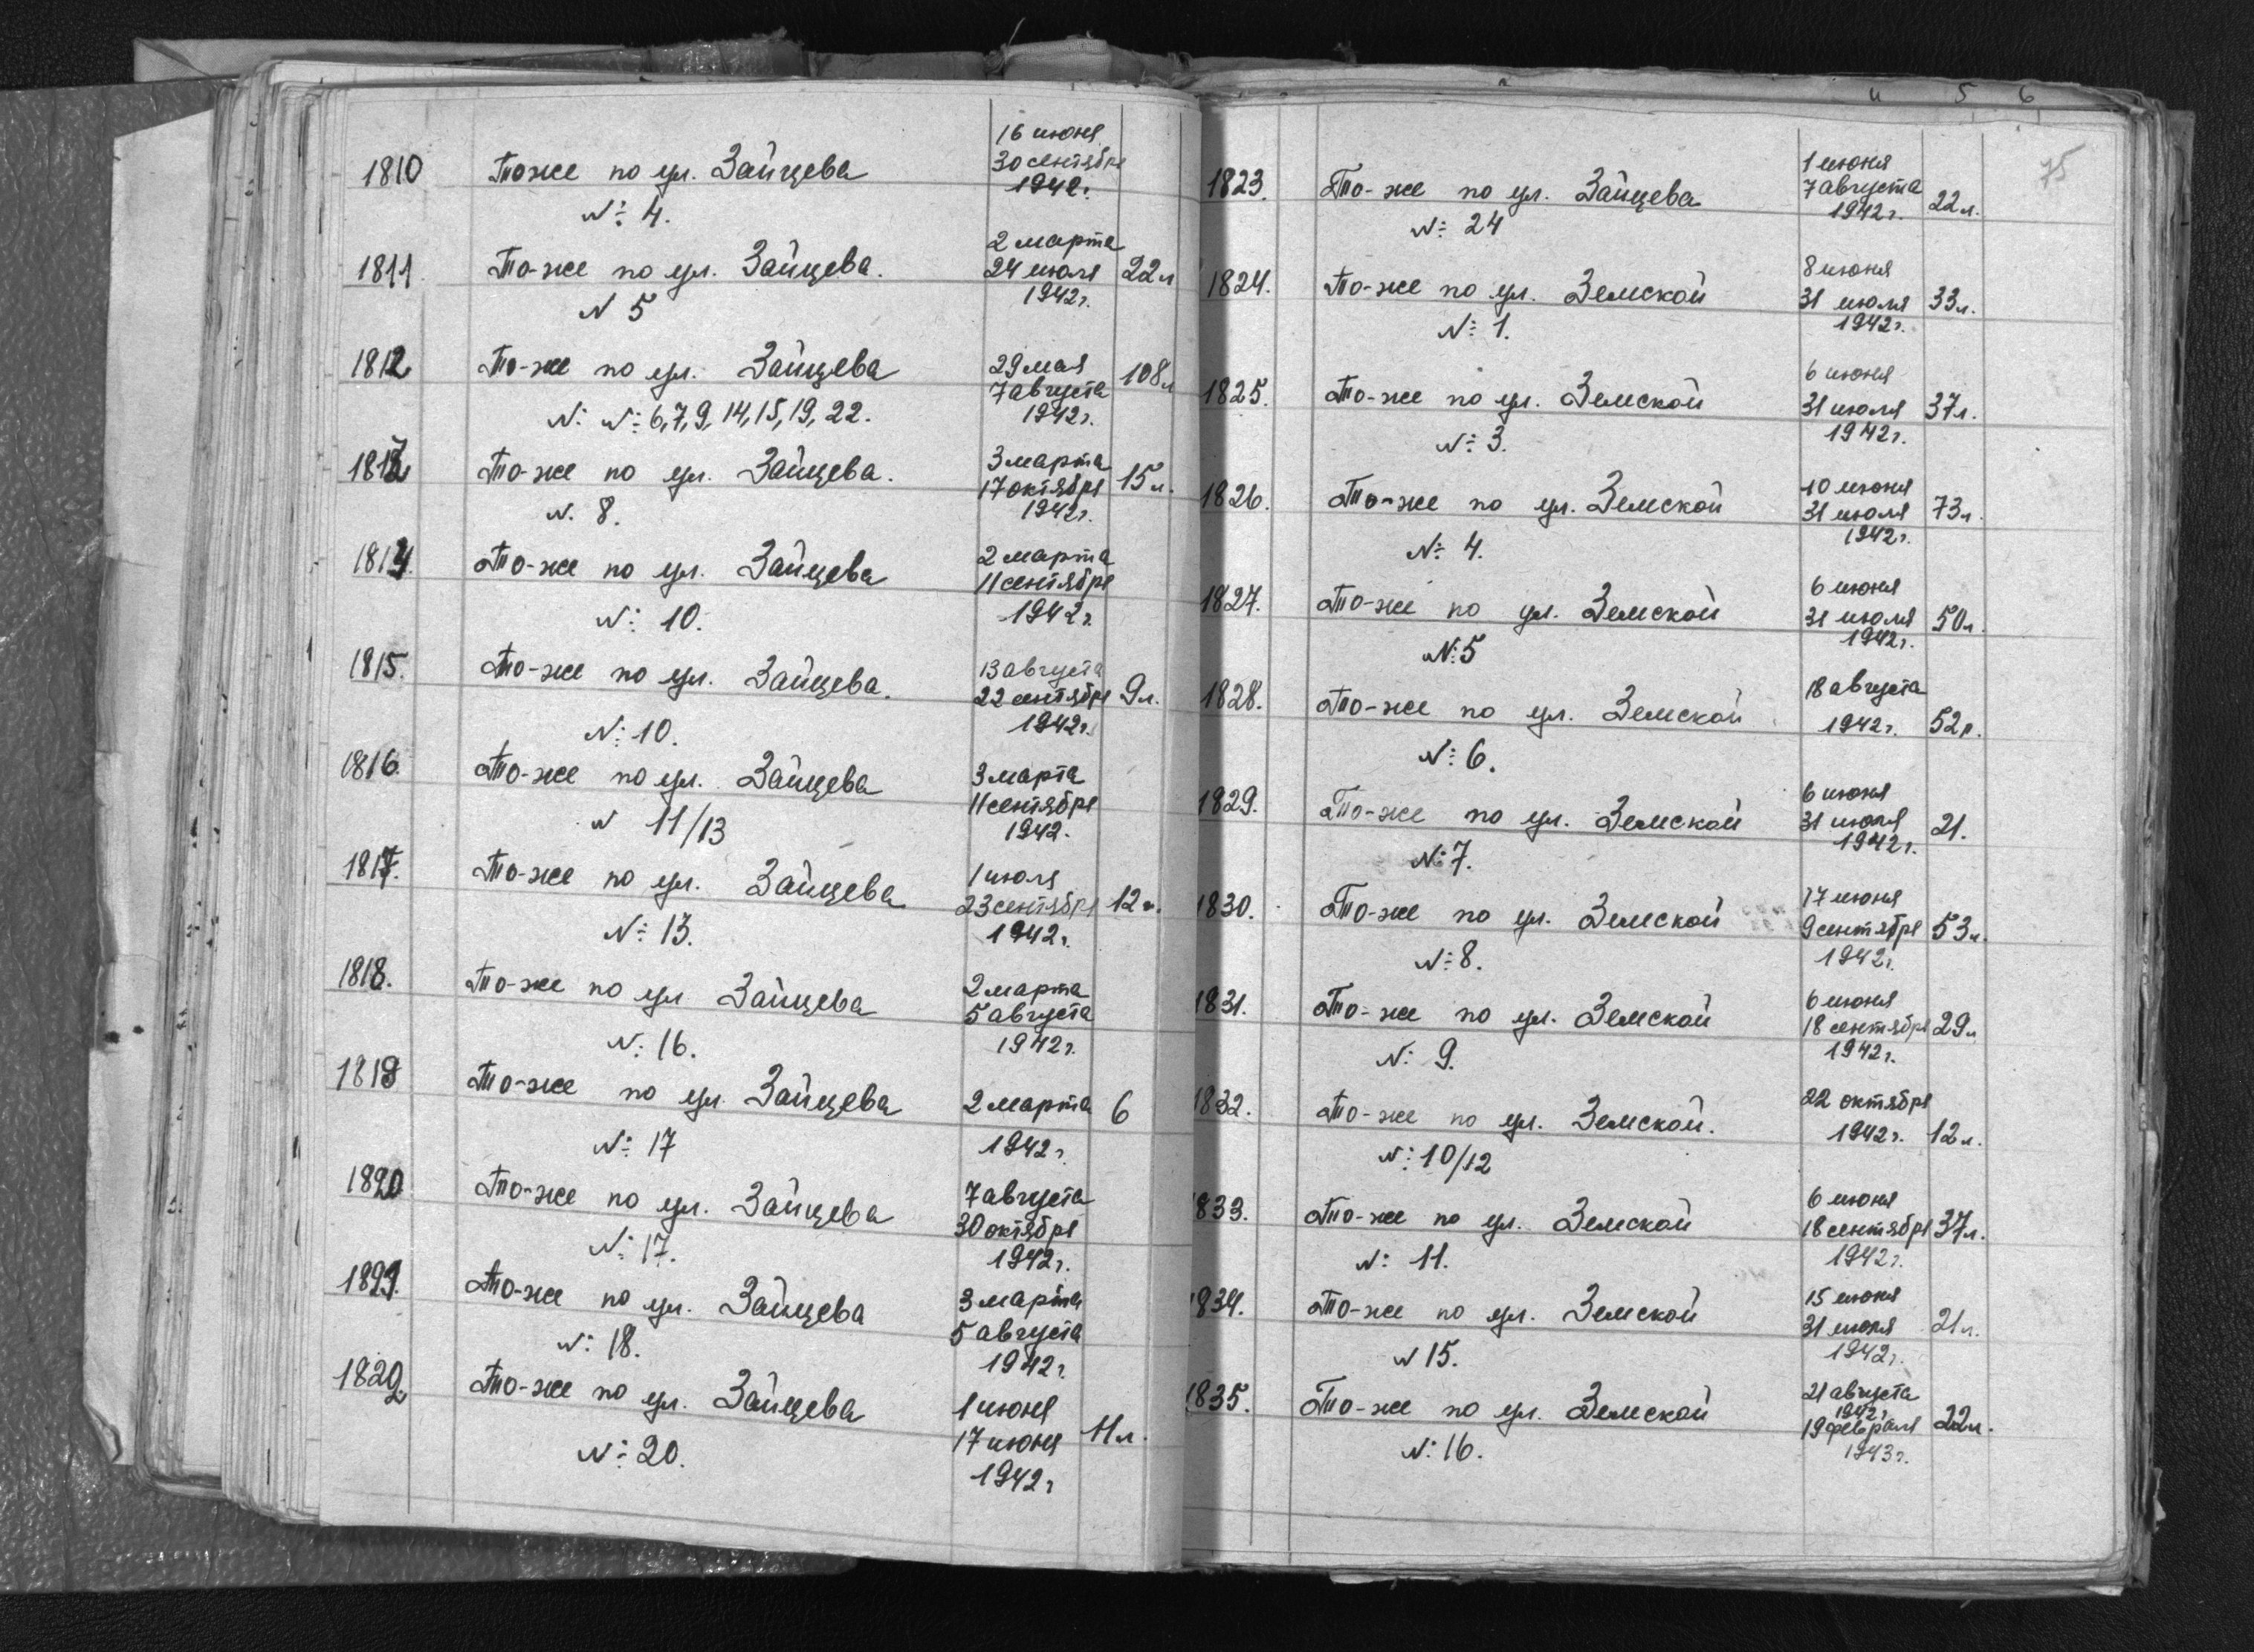 16 июня
1810 Тоже по ул. Зайцева 30 сентября
1942г.
№ 4.
2 марта
1811 То-же по ул. Зайцева. 24 июля 22л
1942г.
N 5
1812 То-же по ул. Зайцева 29 мая 108л
7 августа
N: №: 6,7,9,14,15,19,22. 1942г.
1813 То-же по ул. Зайцева. 3 марта 15л.
17 октября
N. 8. 1942г.
1814. То-же по ул. Зайцева 2 марта
11 сентября
N: 10. 1942г.
1815. То-же по ул. Зайцева. 13 августа
22 сентября 9л.
N: 10. 1942г.
1816. То-же по ул. Зайцева 3 марта
11 сентября
N 11/13 1942.
1817. То-же по ул. Зайцева 1 июля
23 сентября 12л.
№ 13. 1942г.
1818. То-же по ул Зайцева 2 марта
5 августа
N: 16. 1942г.
1819 То-же по ул. Зайцева 2 марта 6
№ 17 1942г.
1820 То-же по ул. Зайцева 7 августа
30 октября
№ 17. 1942г.
1821. То-же по ул. Зайцева 3 марта
5 августа
N: 18. 1942г.
1822. То-же по ул. Зайцева 1 июня
17 июня 11л.
№ 20. 1942г
4 5 6
75
1 июня
1823. То-же по ул. Зайцева 7 августа 22л.
1942г.
№ 24
8 июня
1824. То-же по ул. Земской 31 июля 33л.
1942г.
№ 1.
6 июня
1825. То-же по ул. Земской 31 июля 37л.
1942г.
№ 3.
10 июня
1826. То-же по ул. Земской 31 июля 73л.
1942г.
№ 4.
6 июня
1827. То-же по ул. Земской 31 июля 50л.
1942г.
N:5
18 августа
1828. То-же по ул. Земской 1942г. 52л.
N: 6.
6 июня
1829. То-же по ул. Земской 31 июля 21.
1942г.
N:7.
17 июня
1830. То-же по ул. Земской 9 сентября 53л.
1942г.
N:8.
6 июня
1831. То-же по ул. Земской 18 сентября 29л
1942г.
N: 9.
22 октября
1832. То-же по ул. Земской. 1942г. 12л.
N: 10/12
6 июня
1833. То-же по ул. Земской 18 сентября 37л.
1942г.
N: 11.
15 июня
1834. То-же по ул. Земской 31 июля 21л.
1942г.
N 15.
21 августа
1835. То-же по ул. Земской 1942г.
19 февраля 22л.
N: 16. 1943г.